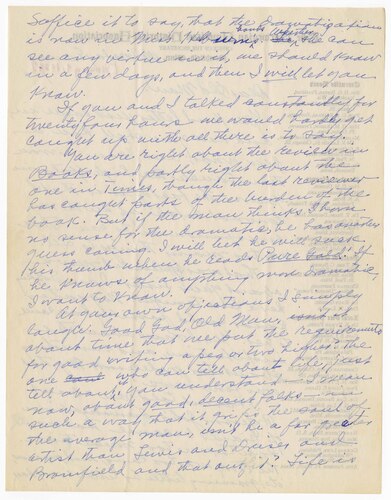 Suffice it to say, that the dramatization
is now in
see any virtue in it, we should know
in a few days, and then I will let you
know.
If you and I talked constantly for
twenty four hours we would hardly get
caught up with all there is to say.
You are right about the review in
Books, and partly right about the
one in Times, though the last reviewer
has caught parts of the burden of the
book. But if the man thinks I have
no sense for the dramatic, he has another
guess coming. I will bet he will suck
his thumb when he reads Pure Gold. If
he knows of anything more dramatic,
I want to know.
At your own I simply
laughed. Good God, Old Man, isn't it
about time that we put the requirements
for good writing a peg or two higher? the
one who can tell about life, just
tell about it, you understand — I mean
now, about good, decent folks — in
such a way that it grips the soul of
the average man, isn't he a far greater
artist than Lewis and Dreiser and
Bromfield and that outfit? Life is